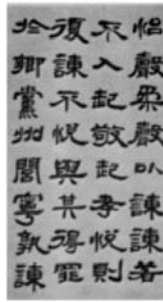 怡聲柔聲以諫諫若
不入起敬起孝悅則
復諫不悅與其得罪
於鄉黨州閭寧孰諫